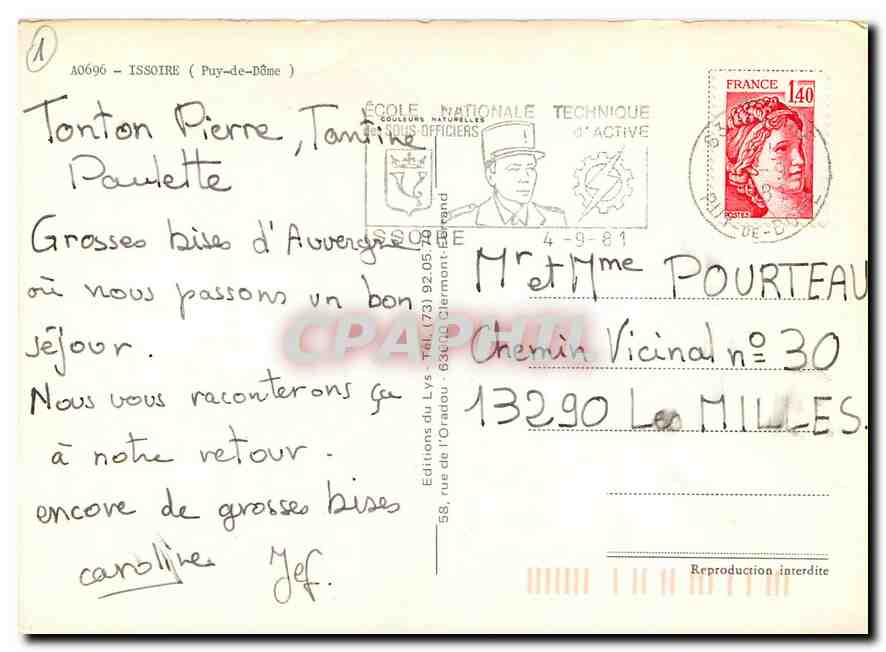 1
A0696 - ISSOIRE ( Puy-de-Dôme )
Tonton Pierre, Tantine
Paulette
Grosses bises d'Auvergne
où nous passons un bon
séjour.
Nous vous raconterons ça
à notre retour.
encore de grosses bises
caroline Jef.
ÉCOLE NATIONALE TECHNIQUE
COULEURS NATURELLES
de SOUS-OFFICIERS d'ACTIVE
ISSOIRE 4-9-81
FRANCE
1,40
POSTES
63
PUY-DE-DOME
Editions du Lys - Tél. (73) 92.05.70
58, rue de l'Oradou - 63000 Clermont-Ferrand
Mr et Mme POURTEAU
Chemin Vicinal no 30
13290 Les MILLES.
CPAPHIL
Reproduction interdite